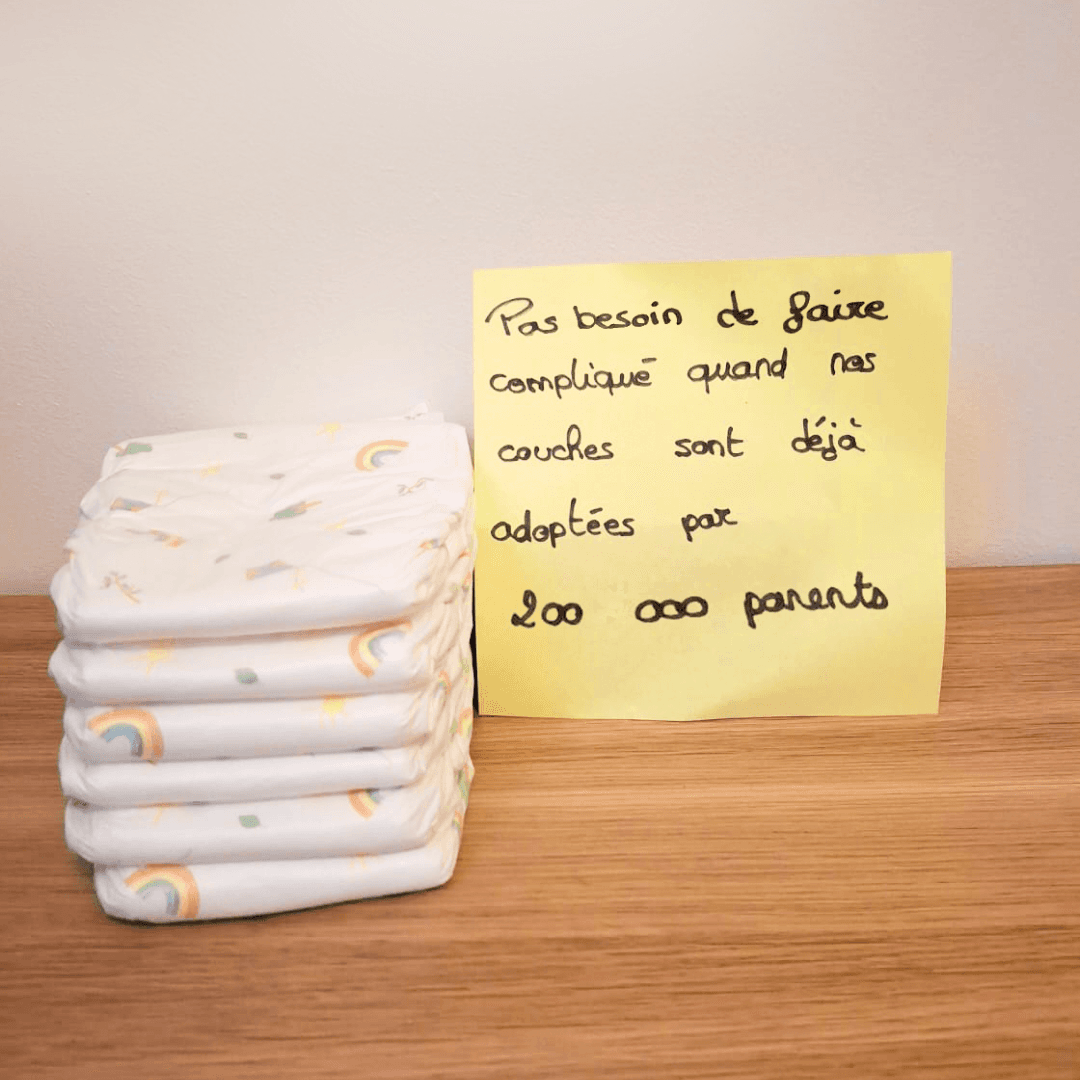 Pas besoin de faire
compliqué quand nos
couches sont déjà
adoptées par
200 000 parents